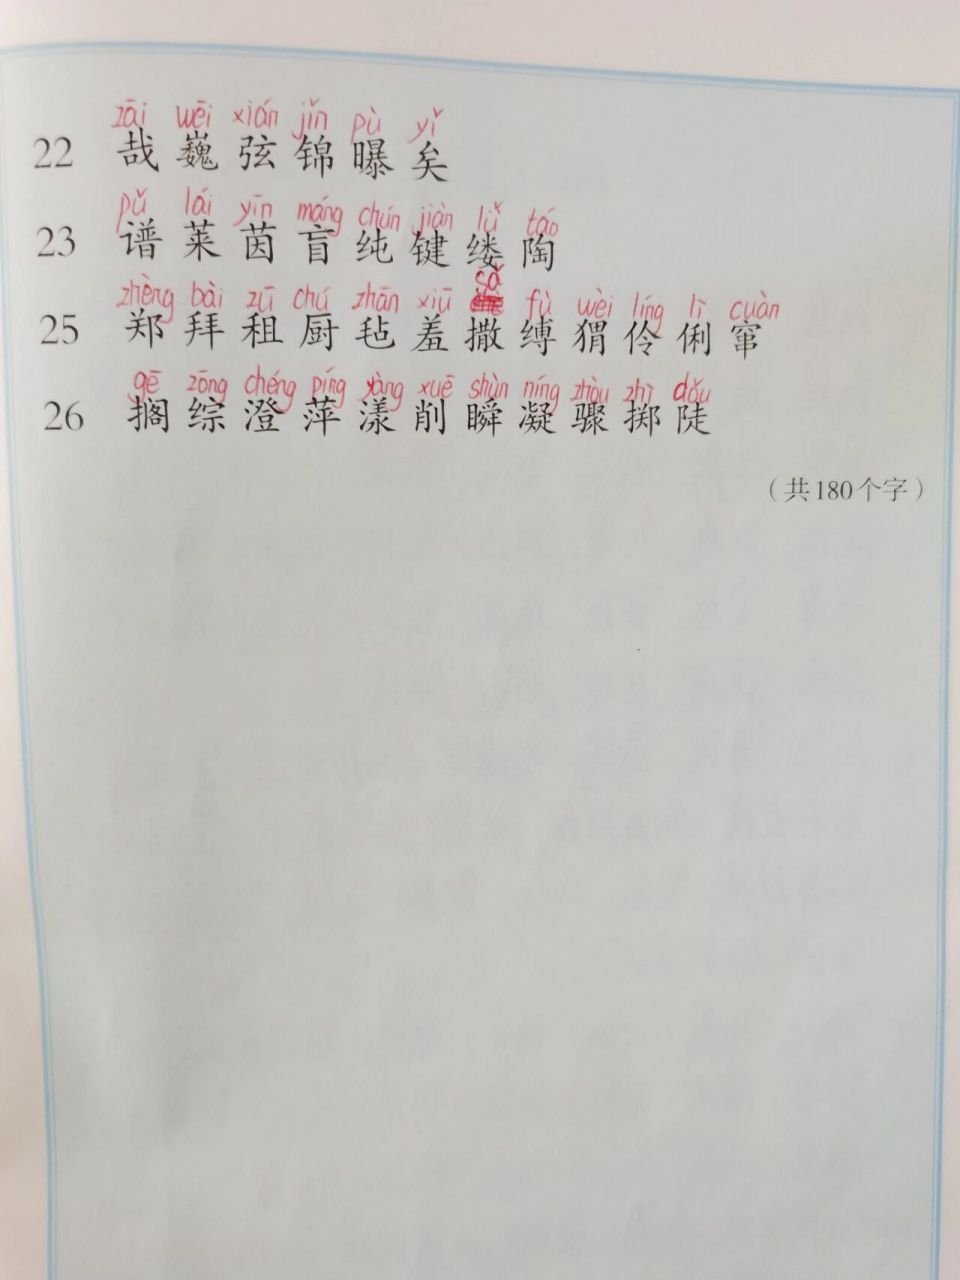 zāi wēi xián jǐn pù yǐ
22 哉 巍 弦 锦 曝 矣
pǔ lái yīn máng chún jiàn lǚ táo
23 谱 莱 茵 盲 纯 键 缕 陶
sǎ
zhèng bài zū chú zhān xiū fù wèi líng lì cuàn
25 郑 拜 租 厨 毡 羞 撒 缚 猬 伶 俐 窜
gē zōng chéng píng yàng xuē shùn níng zhòu zhì dǒu
26 搁 综 澄 萍 漾 削 瞬 凝 骤 掷 陡
（共180个字）